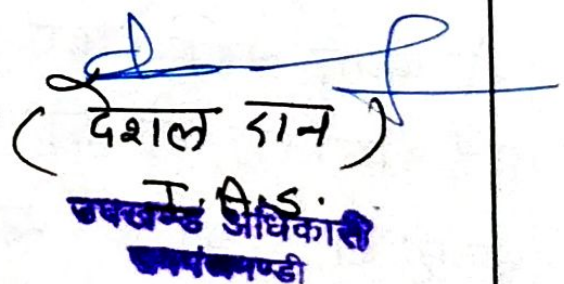 ( देशल दान )
I.A.S.
उपखण्ड अधिकारी